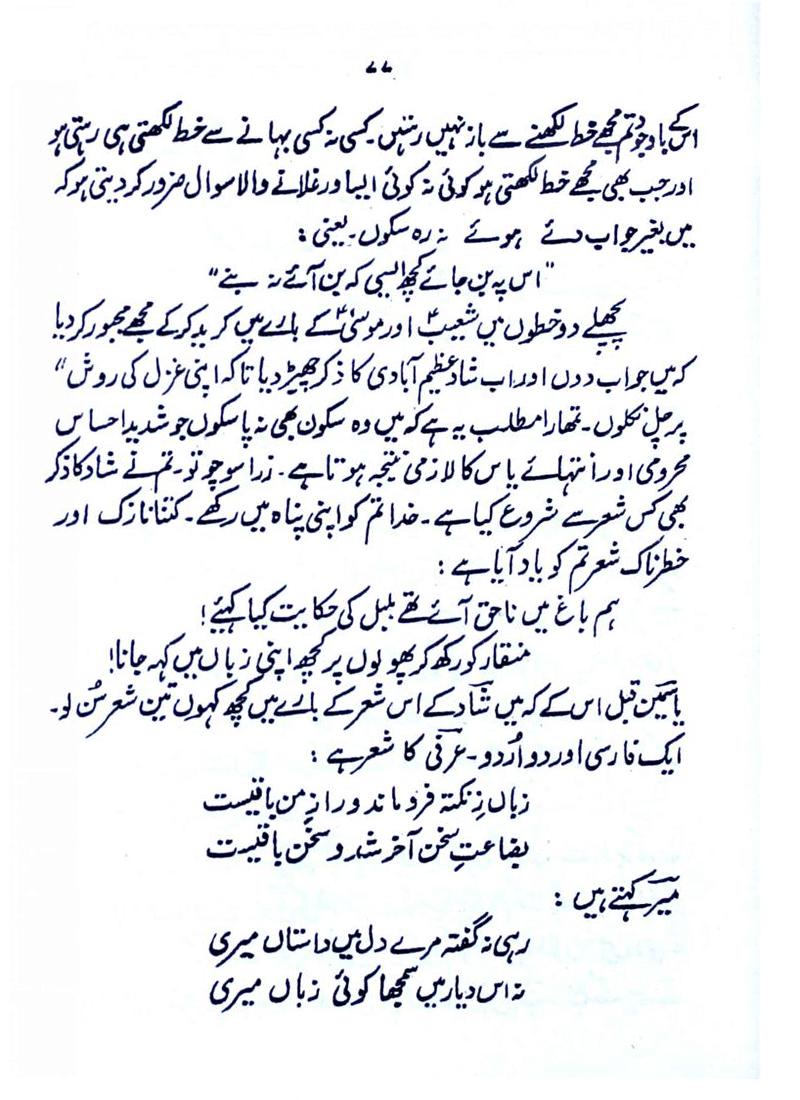 ۷۷
اس کے باوجود تم مجھے خط لکھنے سے باز نہیں رہتیں۔ کسی نہ کسی بہانے سے خط لکھتی ہی رہتی ہو
اور جب بھی مجھے خط لکھتی ہو کوئی نہ کوئی ایسا ورغلانے والا سوال ضرور کر دیتی ہو کہ
میں بغیر جواب دئے ہوئے نہ رہ سکوں۔ یعنی :
"اس پہ بن جائے کچھ ایسی کہ بن آئے نہ بنے"
پچھلے دو خطوں میں شعیبؑ اور موسیٰؑ کے بارے میں کرید کر کے مجھے مجبور کر دیا
کہ میں جواب دوں اور اب شاد عظیم آبادی کا ذکر چھیڑ دیا تاکہ اپنی غزل کی روش"
پر چل نکلوں۔ تمھارا مطلب یہ ہے کہ میں وہ سکون بھی نہ پا سکوں جو شدید احساس
محرومی اور انتہائے یاس کا لازمی نتیجہ ہوتا ہے۔ ذرا سوچو تو۔ تم نے شاد کا ذکر
بھی کس شعر سے شروع کیا ہے۔ خدا تم کو اپنی پناہ میں رکھے۔ کتنا نازک اور
خطرناک شعر تم کو یاد آیا ہے :
ہم باغ میں ناحق آئے تھے بلبل کی حکایت کیا کہیئے!
منقار کو رکھ کر پھولوں پر کچھ اپنی زباں میں کہہ جانا!
یاسمین قبل اس کے کہ میں شاد کے اس شعر کے بارے میں کچھ کہوں تین شعر سُن لو۔
ایک فارسی اور دو اُردو۔ عرفی کا شعر ہے :
زباں زِ نکتہ فرو ماند و رازِ من باقیست
بضاعتِ سخن آخر شد و سخن باقیست
میر کہتے ہیں :
رہی نہ گفتہ مرے دل میں داستاں میری
نہ اس دیار میں سمجھا کوئی زباں میری